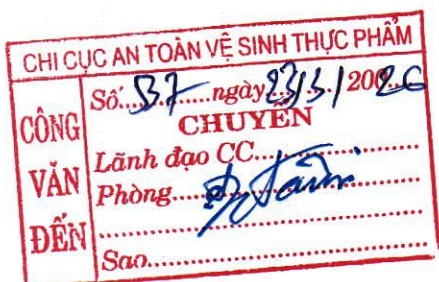 CHI CỤC AN TOÀN VỆ SINH THỰC PHẨM
CÔNG VĂN ĐẾN
Số:..37......ngày 23/3/2026
CHUYỂN
Lãnh đạo CC..................
Phòng...
Sao..............................